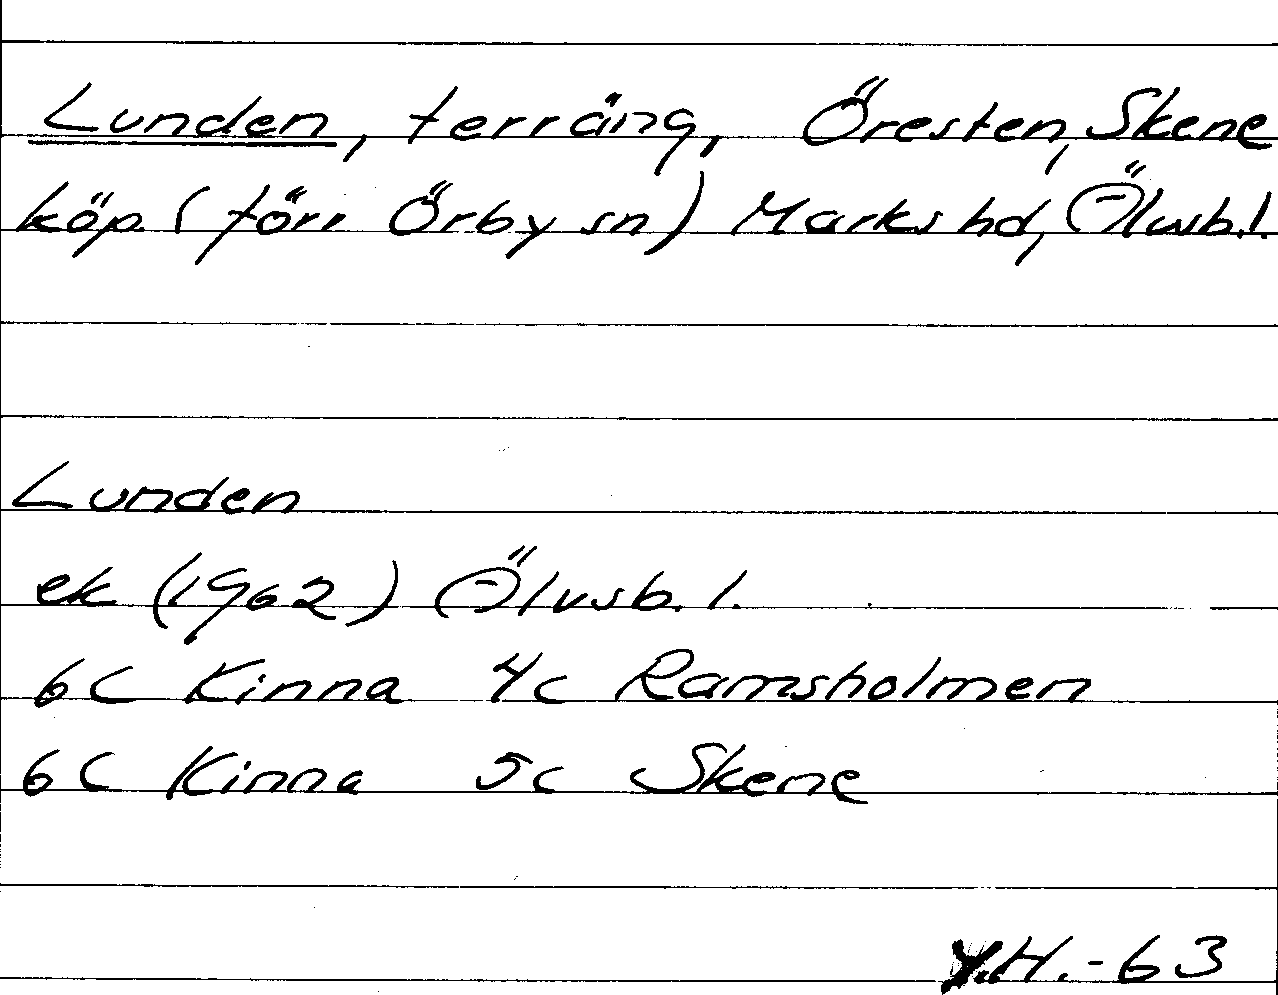 Lunden, terräng, Öresten, Skene
köp. (förr Örby sn) Marks hd, Älvsb. l.
Lunden
ek (1962) Älvsb. l.
6C Kinna 4c Ramsholmen
6C Kinna 5c Skene
H.-63